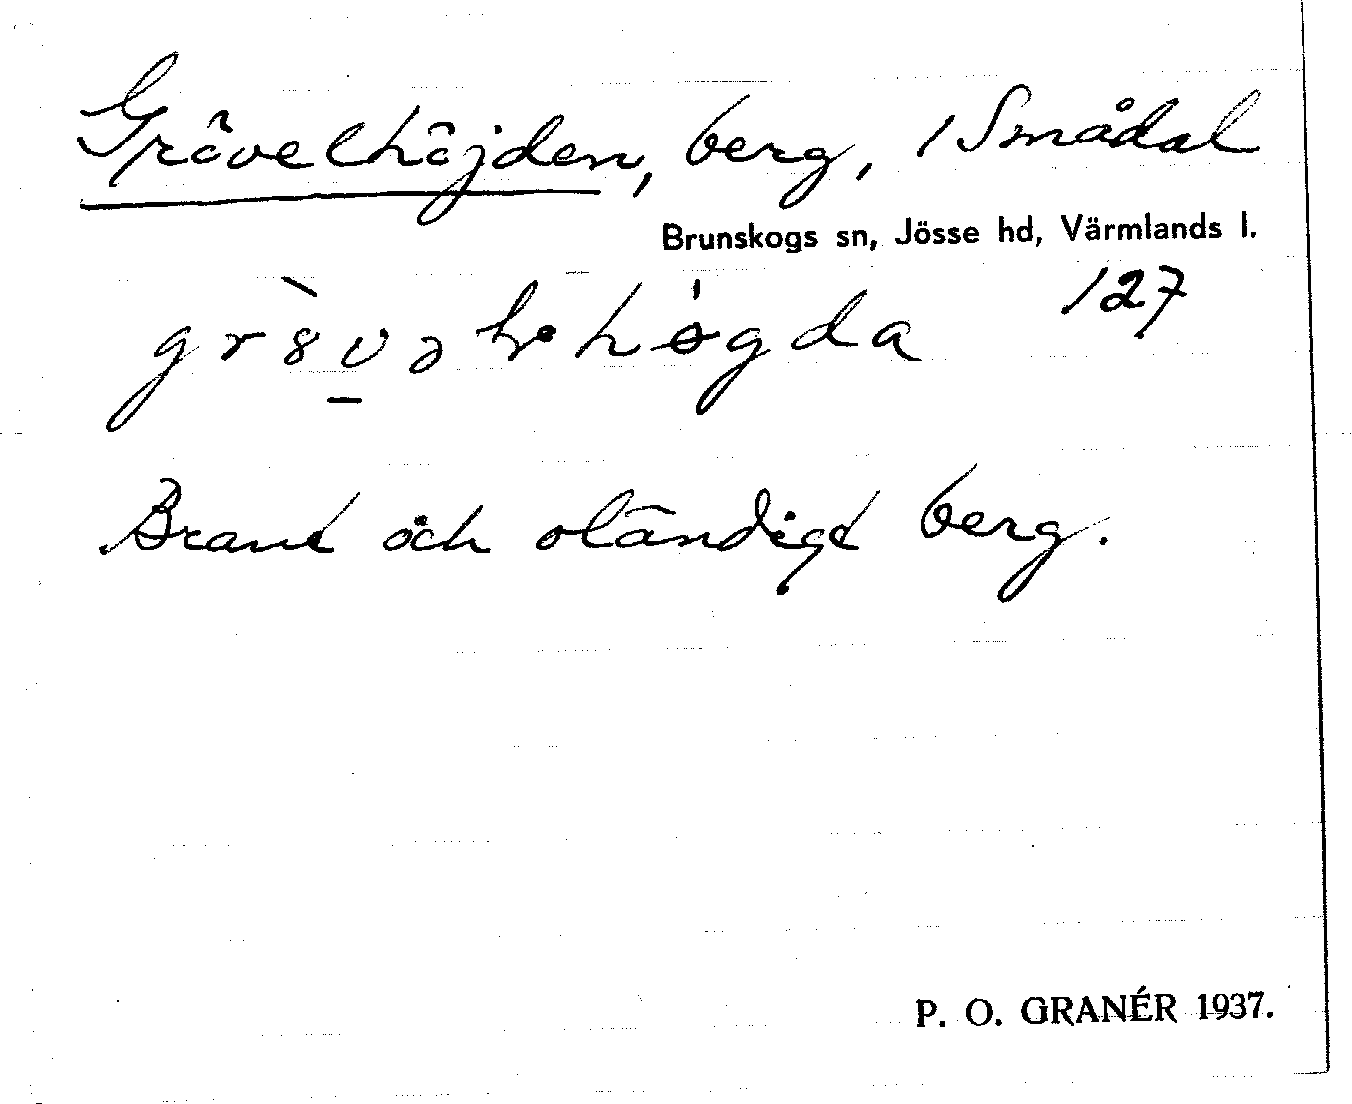 Grövelhöjden, berg, 1 Smådal
Brunskogs sn, Jösse hd, Värmlands l.
127
Brant och oländigt berg.
P. O. GRANÉR 1937.